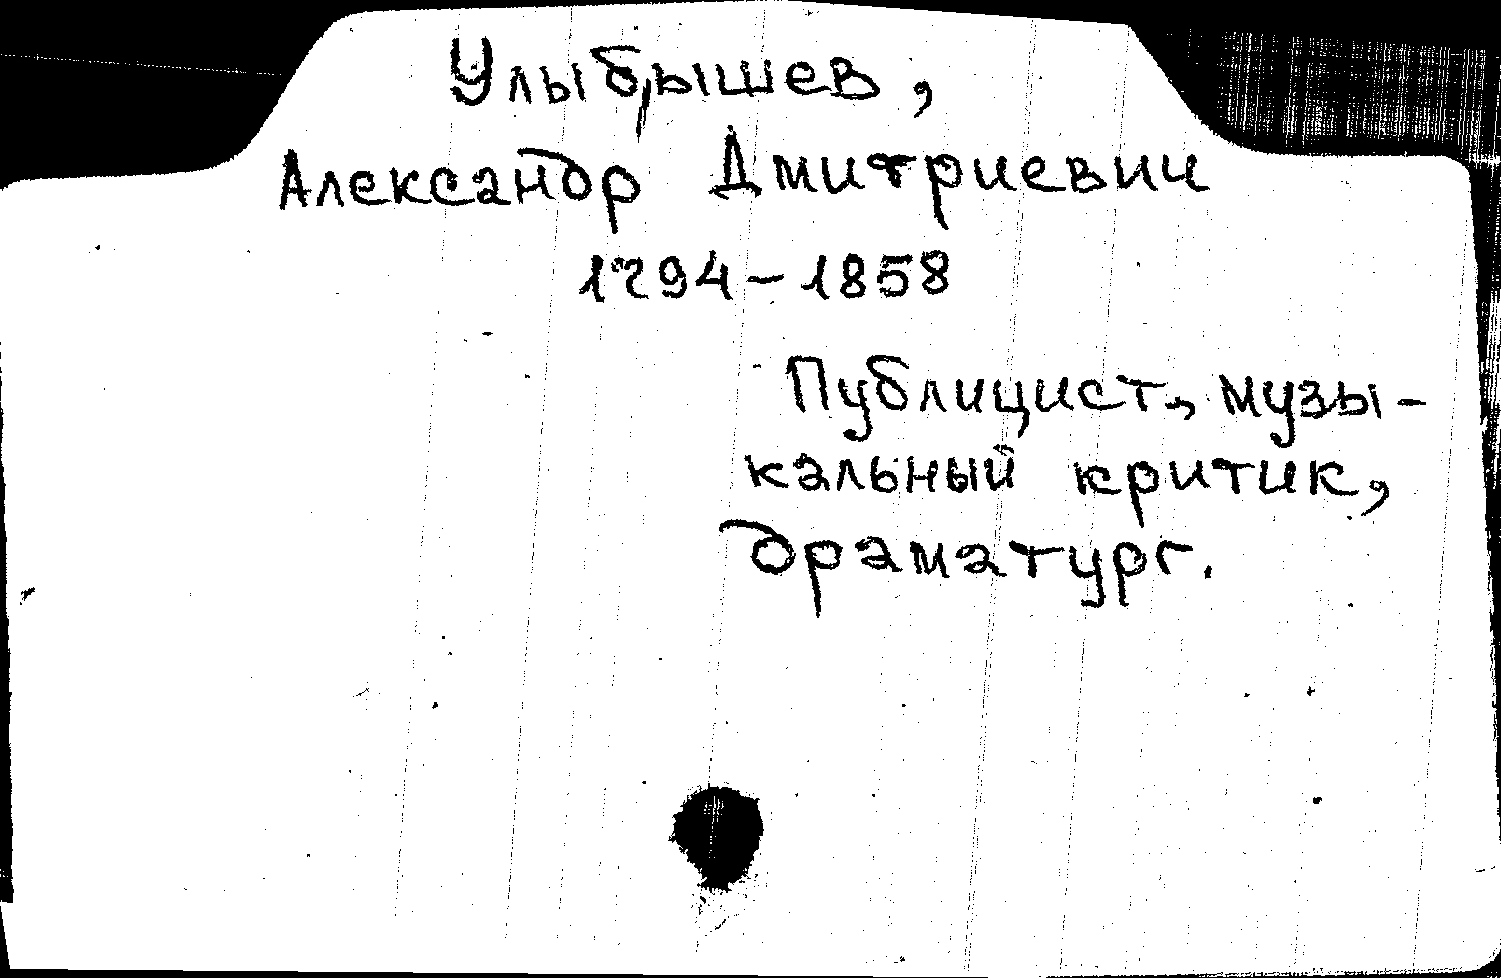 Улыбышев,
Александр Дмитриевич
1794-1858
Публицист, музы-
кальный критик,
драматург.